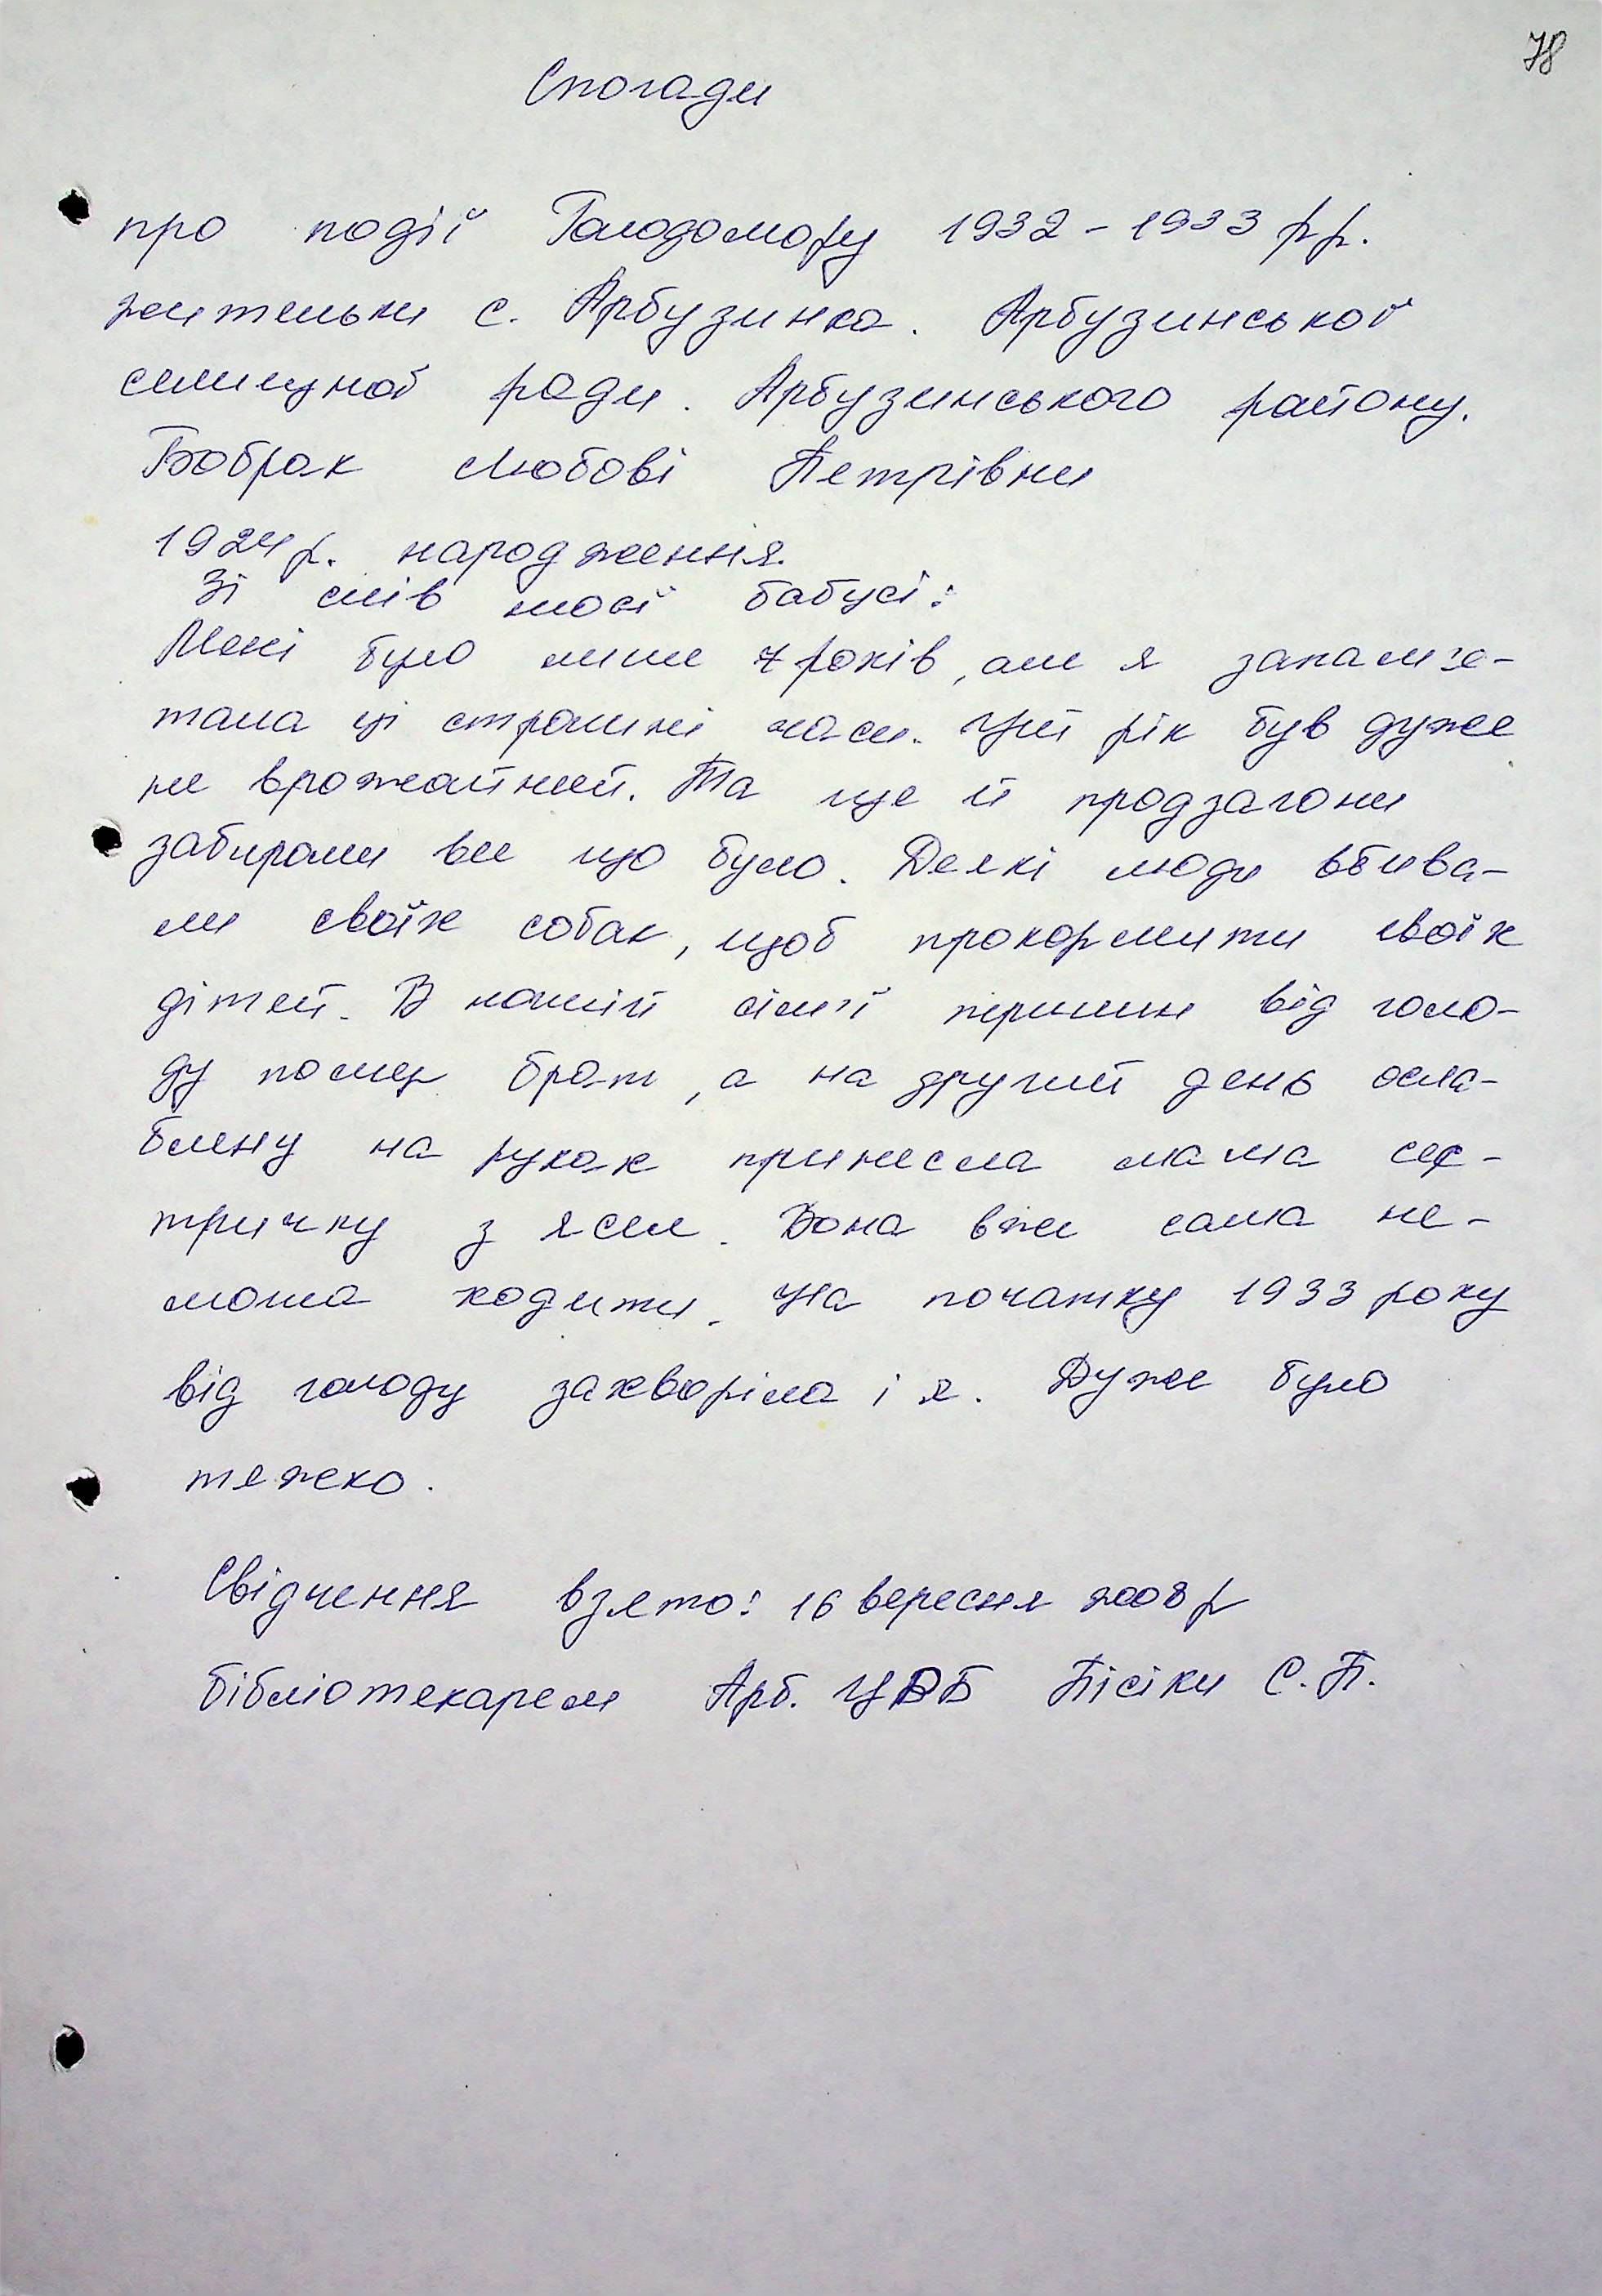 78
Спогади
про події Голодомору 1932-1933 рр.
жительки с. Арбузинка. Арбузинської
селищної ради. Арбузинського району.
Бобрак Любові Петрівни
1924 р. народження.
Зі слів моєї бабусі:
Мені було лише 7 років, але я запам'я-
тала ці страшні часи. Цей рік був дуже
не врожайний. Та ще й продзагони
забирали все що було. Деякі люди вбива-
ли своїх собак, щоб прокормити своїх
дітей. В нашій сім'ї першим від голо-
ду помер брат, а на другий день осла-
блену на руках принесла мама сес-
тричку з ясел. Вона вже сама не-
могла ходити. На початку 1933 року
від голоду захворіла і я. Дуже було
тяжко.
Свідчення взято: 16 вересня 2008 р
бібліотекарем Арб. ЦРБ Пісіки С.П.